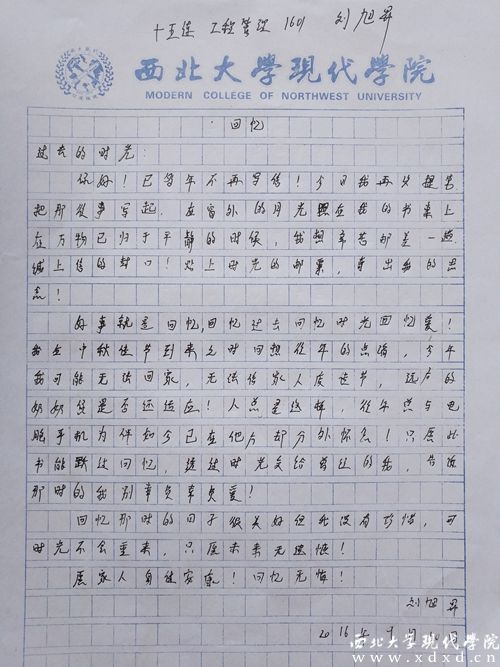 十五连 工程管理 1601 刘旭昇
西北大學現代學院
MODERN COLLEGE OF NORTHWEST UNIVERSITY
回忆
过去的时光：
你好！已多年不再写信！今日我再次提笔
把那从事写起，在窗外的月光照在我的书桌上
在万物已归于平静的时候，我想幸苦邮差一趟
缄上信的封口！贴上时光的邮票，寄出我的思
念！
好事就是回忆，回忆过去回忆时光回忆爱！
我在中秋佳节到来之时回想往年的点滴，今年
我可能无法回家，无法伴家人度过节，远方的
奶奶您是否还适应！人总是这样，往年总与电
脑手机为伴如今已在他方却分外怀念！只愿此
书能默读回忆，透过时光交给曾经的我，告诉
那时的我别辜负辜负爱！
回忆那时的日子很美好但我没有珍惜，可
时光不会重来，只愿未来无遗憾！
愿家人身体安康！回忆无悔！
刘旭昇
2016年9月
西北大学现代学院
www.xdxd.cn